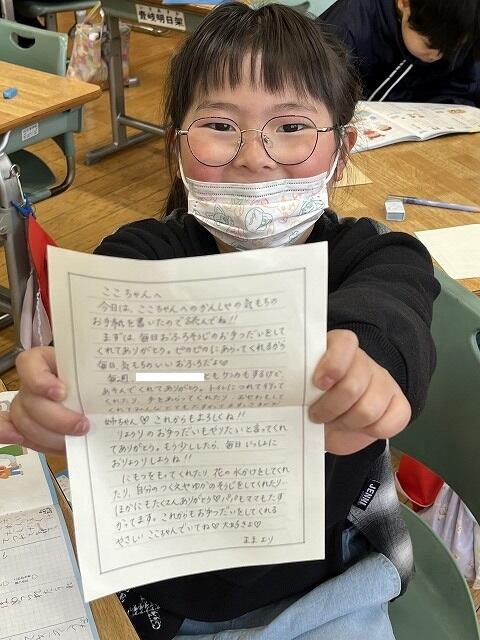 ここちゃんへ
今日は、ここちゃんへのかんしゃの気もち
お手紙を書いたので読んでね!!
まずは、毎日おふろそうじのお手つだいをして
くれてありがとう。ピカピカにあらってくれるから
毎日、気もちのいいおふろだよ♡
毎週
あそんでくれてありがとう。トイレにつれて行って
くれたり、手をあらってくれたり
姉ちゃん♡これからもよろしくね!!
りょうりのお手つだいもやりたいと言ってくれ
てありがとう。もう少ししたら、毎日いっしょに
おりょうりしようね!!
にもつをもってくれたり、花の水かけをしてくれ
たり、自分のつくえやゆかのそうじをしてくれたり…
ほかにもたくさんありがとう♡パパもママもたす
かってます。これからもお手つだいをしてくれる
やさしいここちゃんでいてね♡大好きだよ♡
ままより
JENNI